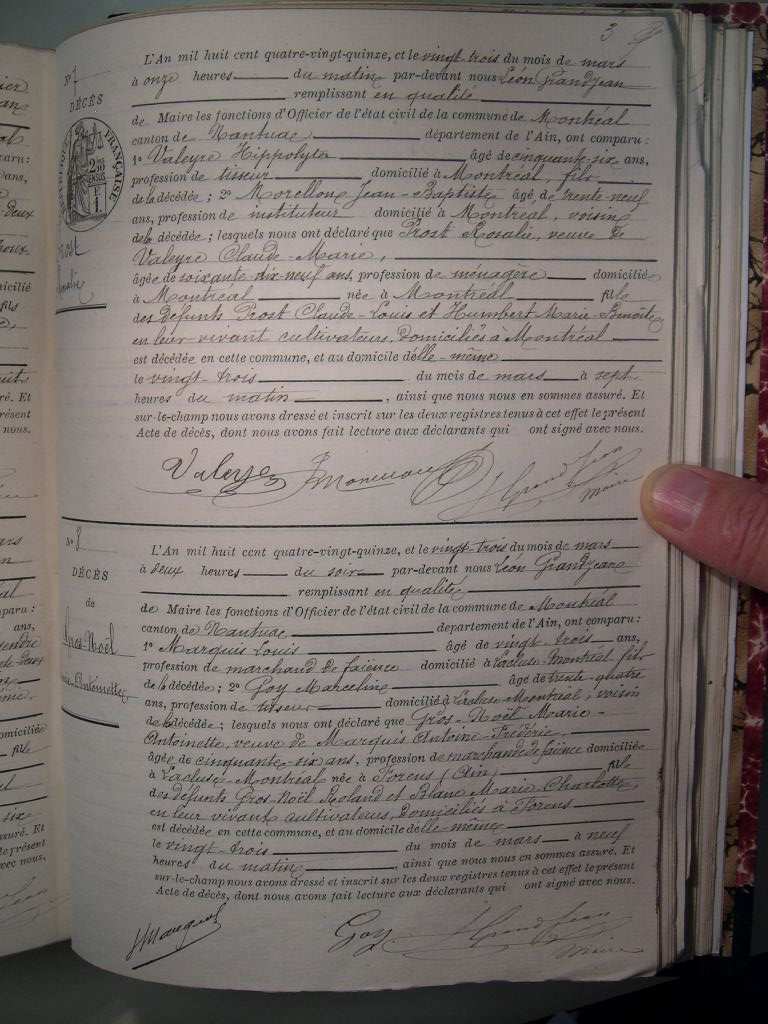 3
N° 7
DÉCÈS
FRANÇAISE
Prost
Rosalie
L'An mil huit cent quatre-vingt-quinze, et le vingt trois du mois de mars
à onze heures du matin par-devant nous Léon Grandjean
remplissant en qualité
de Maire les fonctions d'Officier de l'état civil de la commune de Montréal
canton de Nantua département de l'Ain, ont comparu :
1° Valeyre Hippolyte âgé de cinquante-six ans,
profession de tisseur domicilié à Montréal, fils
de la décédée ; 2° Morellon Jean-Baptiste âgé de trente-neuf
ans, profession de instituteur domicilié à Montréal, voisin
de la décédée ; lesquels nous ont déclaré que Prost Rosalie, veuve de
Valeyre Claude-Marie,
âgée de soixante-dix-neuf ans, profession de ménagère domiciliée
à Montréal née à Montréal fille
des défunts Prost Claude-Louis et Humbert Marie-Benoîte
en leur vivant cultivateurs, domiciliés à Montréal
est décédée en cette commune, et au domicile d'elle-même
le vingt-trois du mois de mars à sept
heures du matin, ainsi que nous nous en sommes assuré. Et
sur-le-champ nous avons dressé et inscrit sur les deux registres tenus à cet effet le présent
Acte de décès, dont nous avons fait lecture aux déclarants qui ont signé avec nous.
Valeyre Grandjean
Maire
N° 8
DÉCÈS
de
Gros-Noël
Marie-Antoinette
L'An mil huit cent quatre-vingt-quinze, et le vingt-trois du mois de mars
à deux heures du soir par-devant nous Léon Grandjean
remplissant en qualité
de Maire les fonctions d'Officier de l'état civil de la commune de Montréal
canton de Nantua département de l'Ain, ont comparu :
1° Marquis Louis âgé de vingt-trois ans,
profession de marchand de faïence domicilié à Lacluse-Montréal fils
de la décédée ; 2° Goy Marcelin âgé de trente-quatre
ans, profession de tisseur domicilié à Lacluse-Montréal, voisin
de la décédée ; lesquels nous ont déclaré que Gros-Noël Marie-
Antoinette, veuve de Marquis Antoine-Frédéric,
âgée de cinquante-six ans, profession de marchande de faïence domiciliée
à Lacluse-Montréal née à Forens (Ain) fille
des défunts Gros-Noël Roland et Blanc Marie-Charlotte,
en leur vivant cultivateurs, domiciliés à Forens
est décédée en cette commune, et au domicile d'elle-même
le vingt-trois du mois de mars à neuf
heures du matin, ainsi que nous nous en sommes assuré. Et
sur-le-champ nous avons dressé et inscrit sur les deux registres tenus à cet effet le présent
Acte de décès, dont nous avons fait lecture aux déclarants qui ont signé avec nous.
Goy Grandjean
Maire